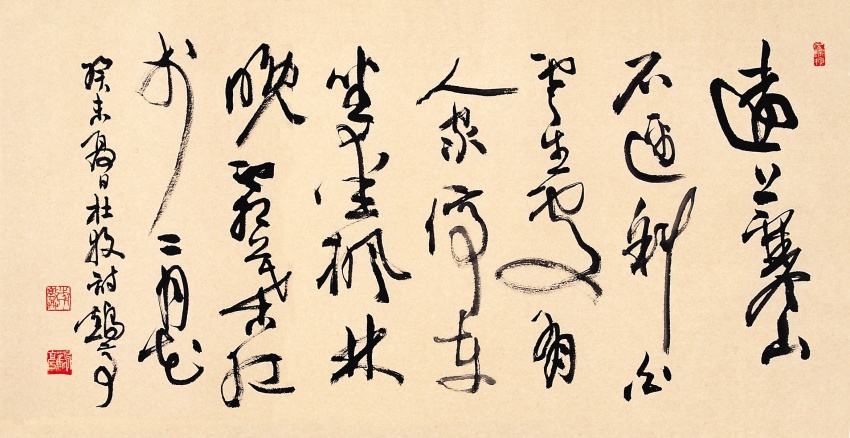 遠上寒山
石逕斜白
雲生處有
人家停車
坐愛楓林
晚霜葉紅
於二月花
癸未夏日杜牧詩